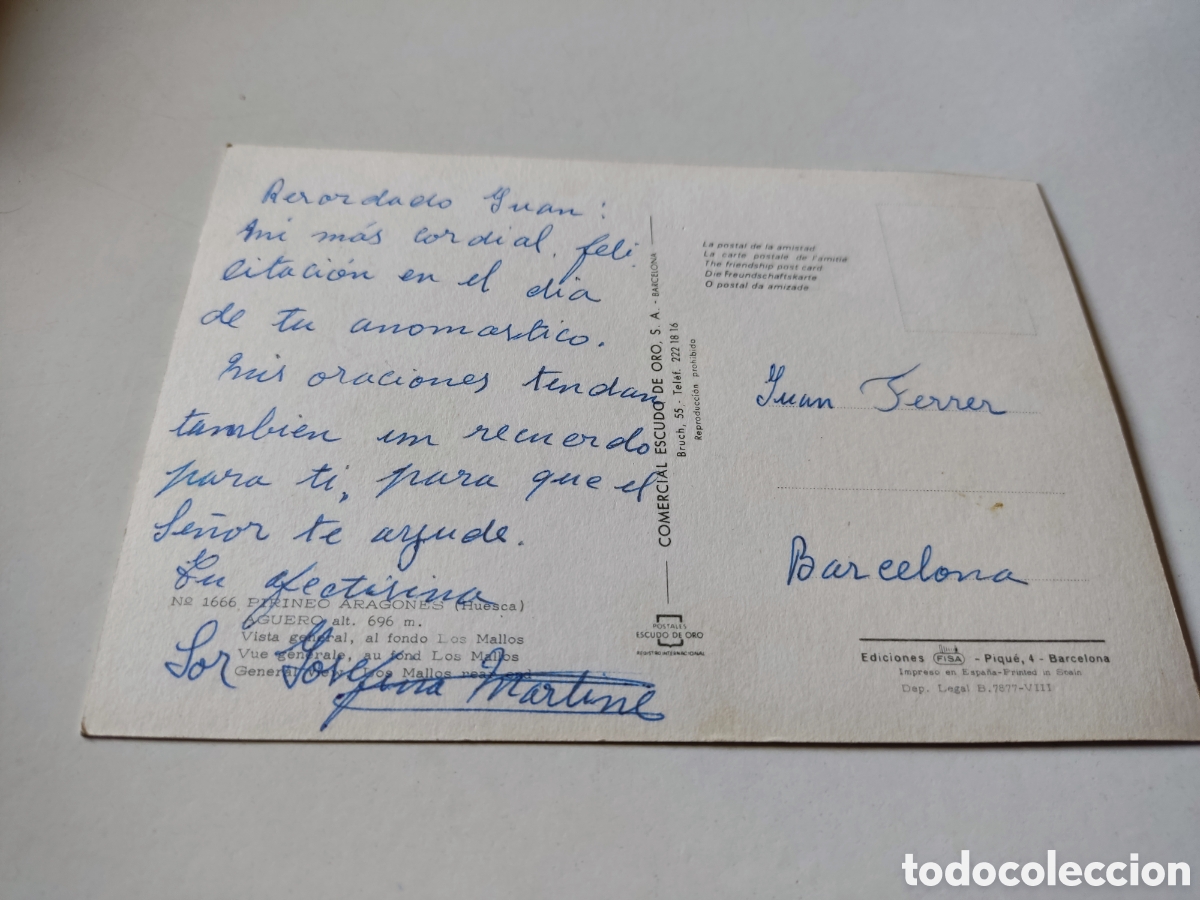 Recordado Juan:
Mi más cordial feli
citación en el dia
de tu anomastico.
Mis oraciones tendan
también un recuerdo
para ti, para que el
Señor te ayude.
Tu afectisina
Sor Josefina Martine
Nº 1666 PIRINEO ARAGONES (Huesca)
AGUERO alt. 696 m.
Vista general, al fondo Los Mallos
Vue générale, au fond Los Mallos
General view, Los Mallos
COMERCIAL ESCUDO DE ORO, S. A. - BARCELONA
Bruch, 55 - Teléf. 222 18 16
Reproducción prohibida
POSTALES
ESCUDO DE ORO
REGISTRO INTERNACIONAL
La postal de la amistad
La carte postale de l'amitié
The friendship post card
Die Freundschaftskarte
O postal da amizade
Juan Ferrer
Barcelona
Ediciones FISA - Piqué, 4 - Barcelona
Impreso en España-Printed in Spain
Dep. Legal B.7877-VIII
todocoleccion